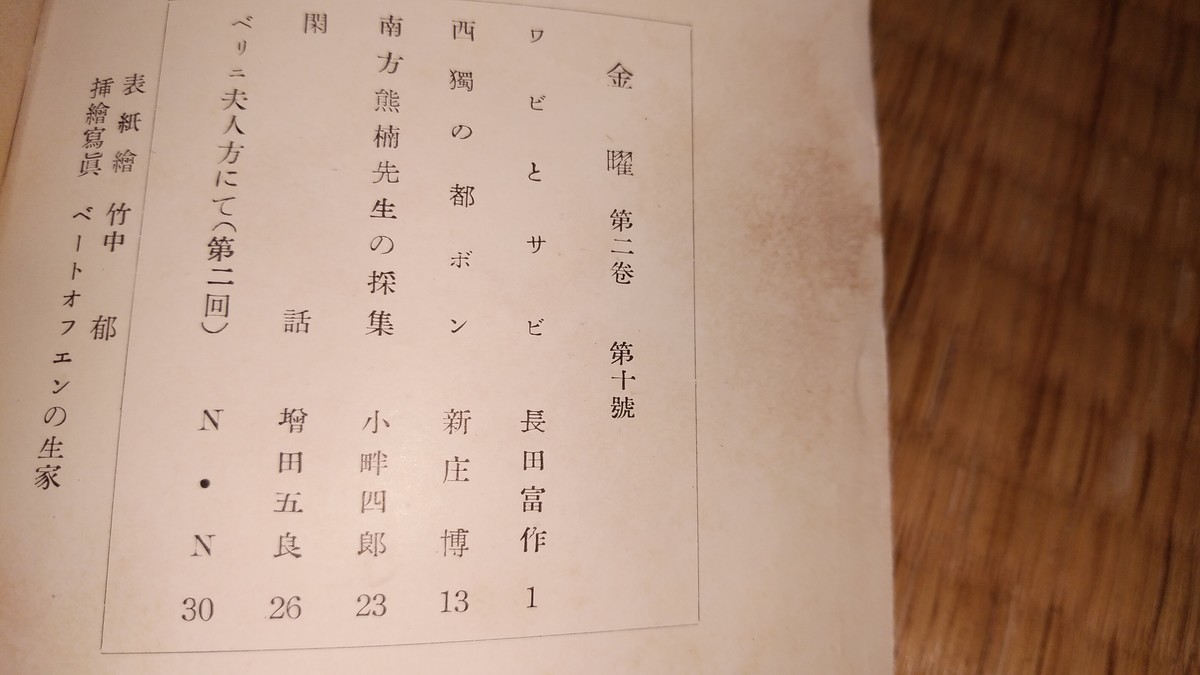 金曜 第二卷 第十號
ワビとサビ 長田富作 1
西獨の都ボン 新庄博 13
南方熊楠先生の採集 小畔四郎 23
閑話 增田五良 26
ベリニ夫人方にて(第二回) N・N 30
表紙繪 竹中郁
挿繪寫眞 ベートオフエンの生家